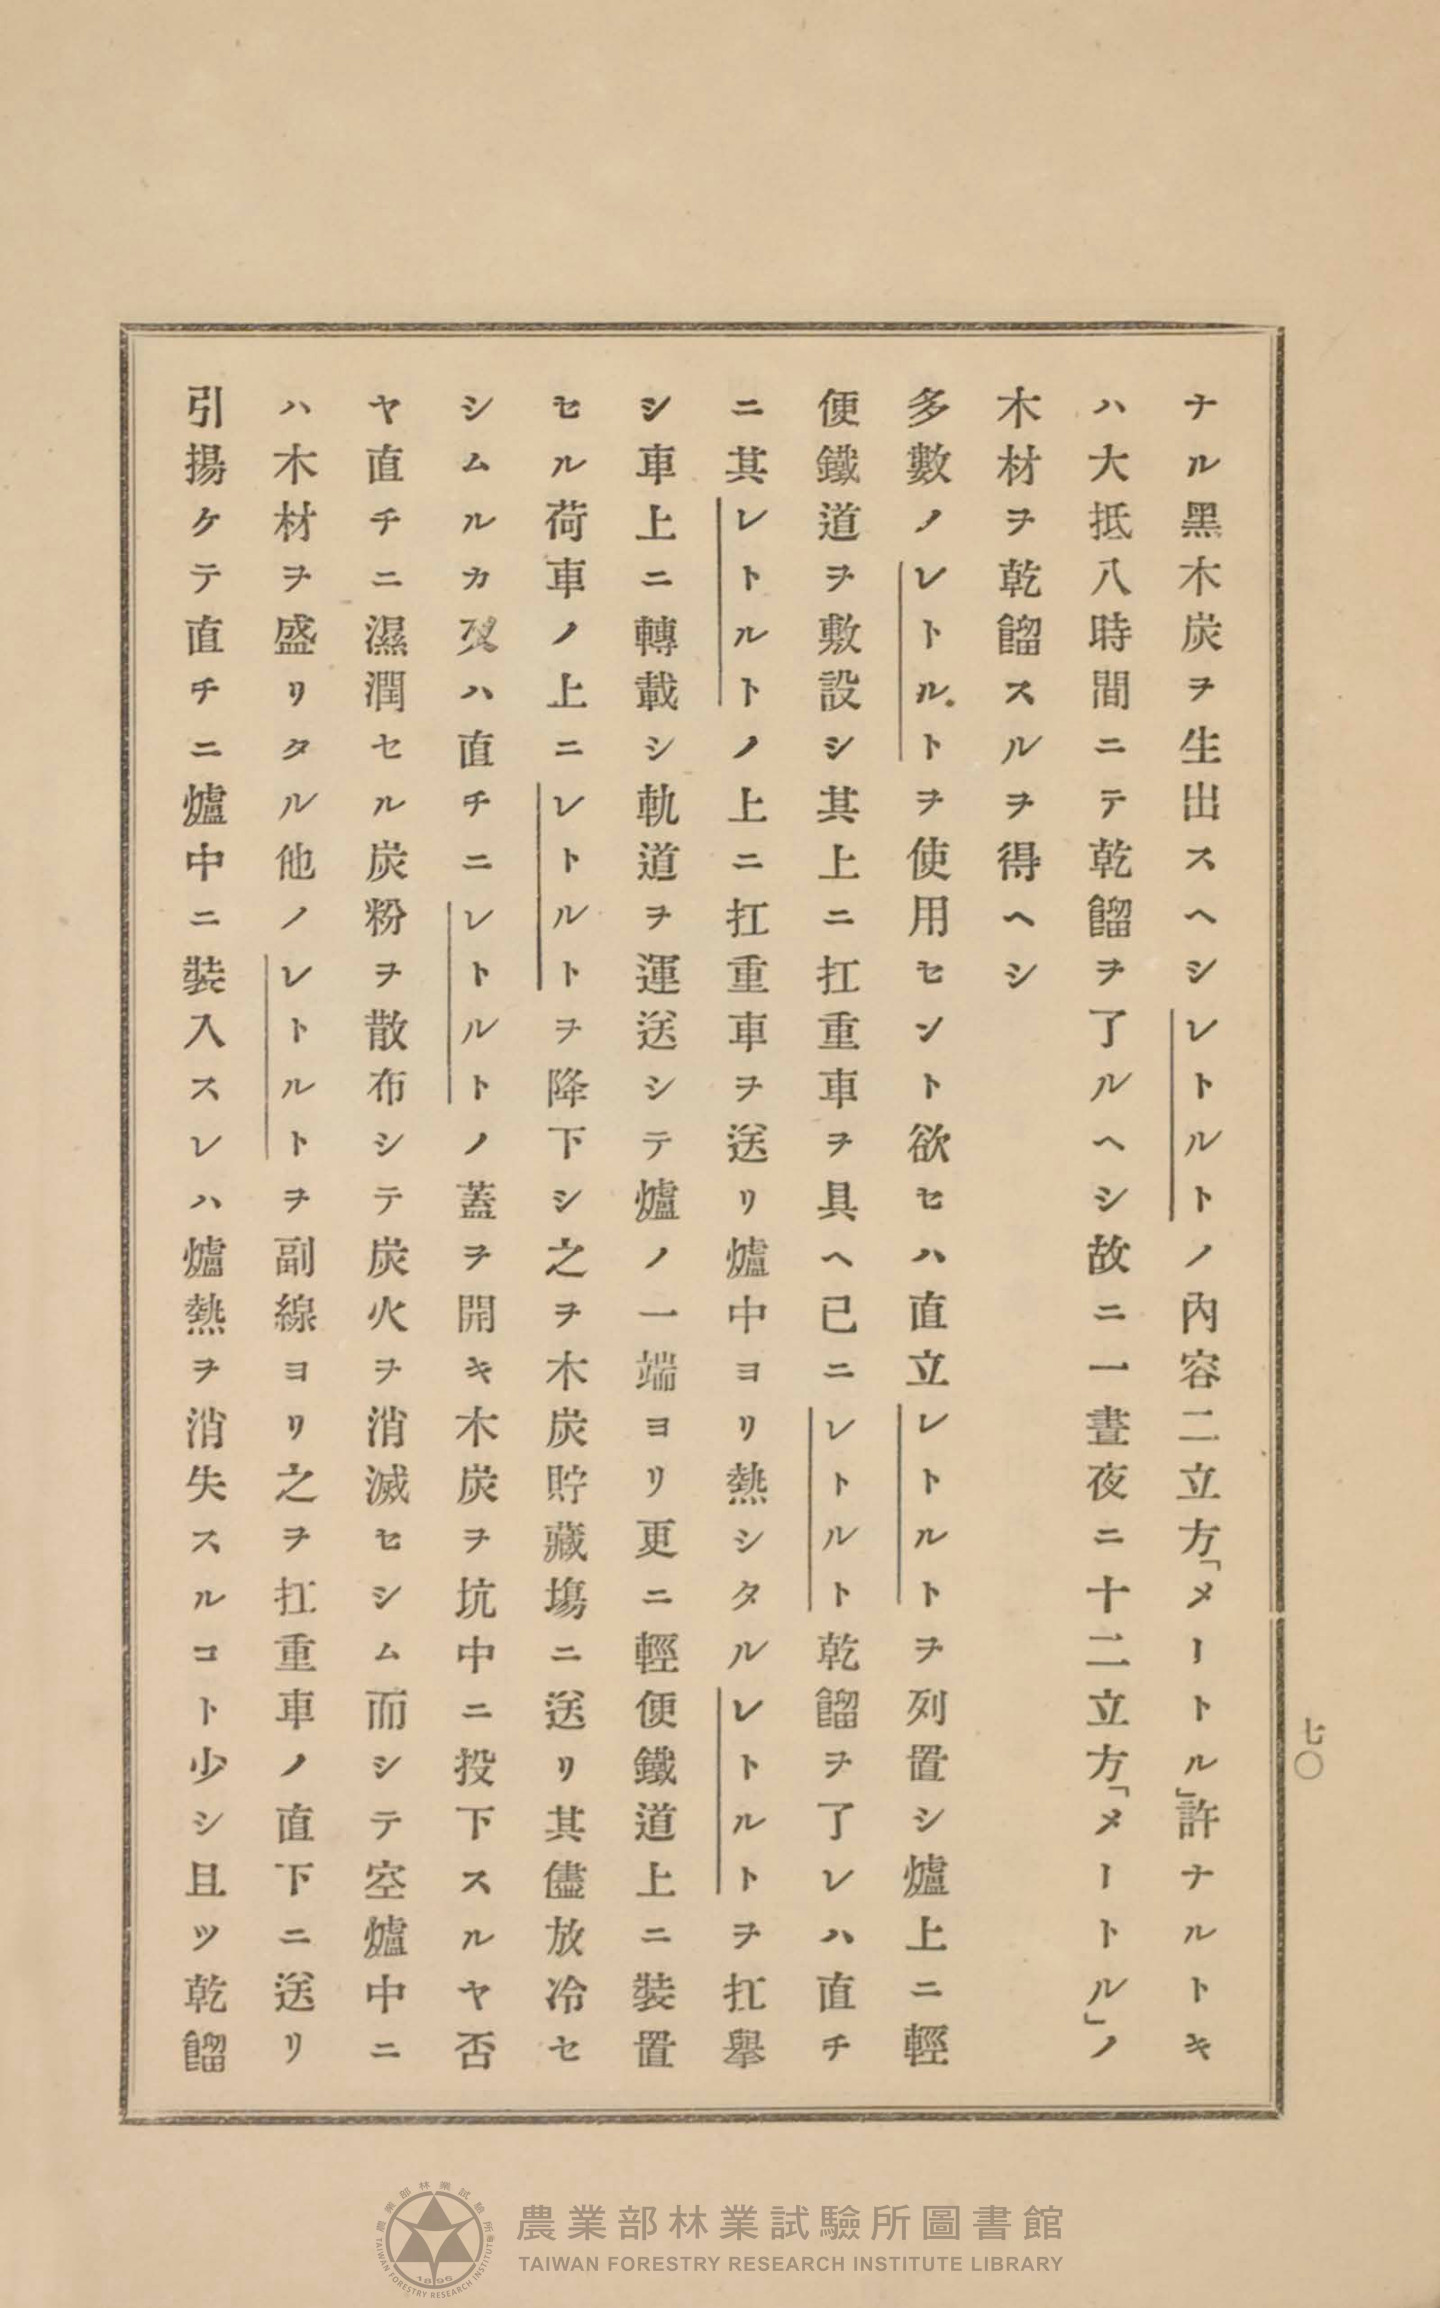 ナル黑木炭ヲ生出スヘシレトルトノ內容二立方「メートル」許ナルトキ
ハ大抵八時間ニテ乾餾ヲ了ルヘシ故ニ一晝夜ニ十二立方「メートル」ノ
木材ヲ乾餾スルヲ得ヘシ
多數ノレトルトヲ使用セント欲セハ直立レトルトヲ列置シ爐上ニ輕
便鐵道ヲ敷設シ其上ニ扛重車ヲ具ヘ已ニレトルト乾餾ヲ了レハ直チ
ニ其レトルトノ上ニ扛重車ヲ送リ爐中ヨリ熱シタルレトルトヲ扛擧
シ車上ニ轉載シ軌道ヲ運送シテ爐ノ一端ヨリ更ニ輕便鐵道上ニ裝置
セル荷車ノ上ニレトルトヲ降下シ之ヲ木炭貯藏塲ニ送リ其儘放冷セ
シムルカ又ハ直チニレトルトノ蓋ヲ開キ木炭ヲ坑中ニ投下スルヤ否
ヤ直チニ濕潤セル炭粉ヲ散布シテ炭火ヲ消滅セシム而シテ空爐中ニ
ハ木材ヲ盛リタル他ノレトルトヲ副線ヨリ之ヲ扛重車ノ直下ニ送リ
引揚ケテ直チニ爐中ニ裝入スレハ爐熱ヲ消失スルコト少シ且ツ乾餾
七〇
農業部林業試驗所圖書館
TAIWAN FORESTRY RESEARCH INSTITUTE LIBRARY
農業部林業試驗所
TAIWAN FORESTRY RESEARCH INSTITUTE
1896